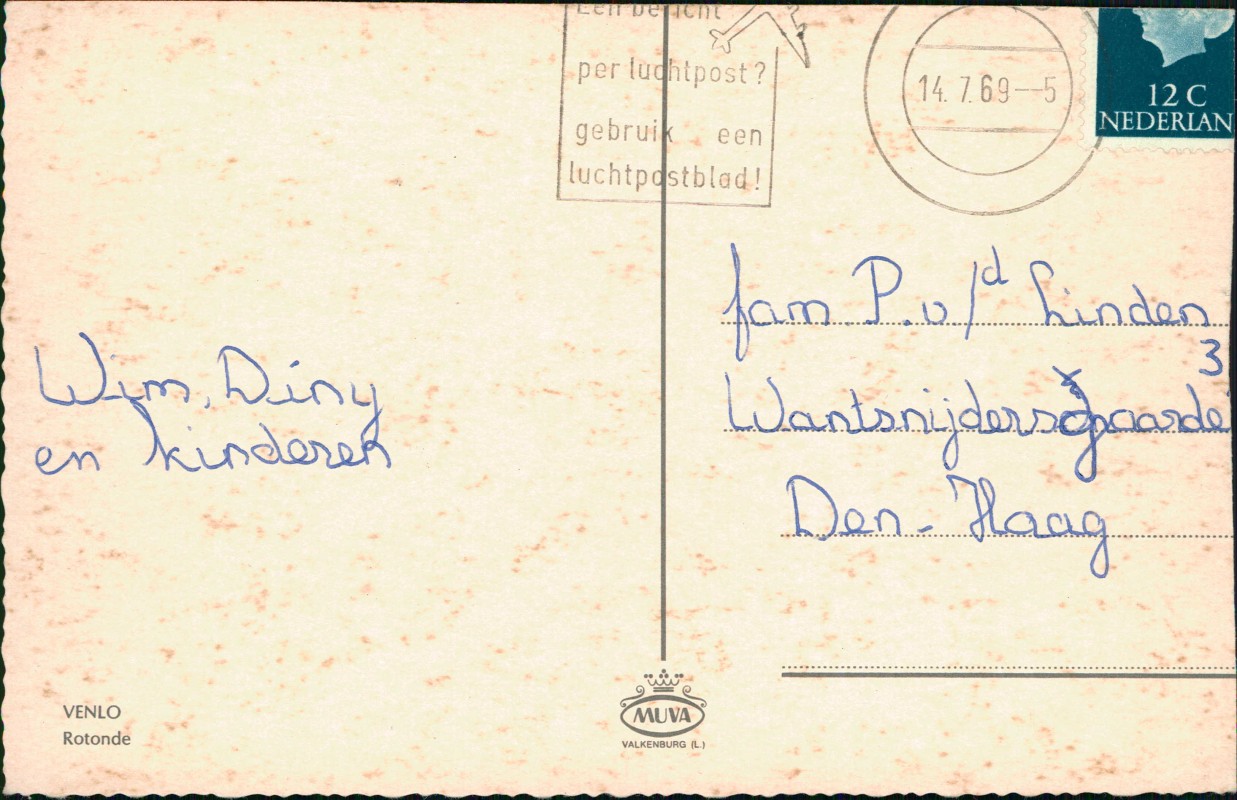 Een bericht
per luchtpost?
gebruik een
luchtpostblad!
14.7.69--5
12 C
NEDERLAN
fam. P. v/d Linden
3
Den-Haag
Wim, Diny
en kinderen
VENLO
Rotonde
MUVA
VALKENBURG (L.)